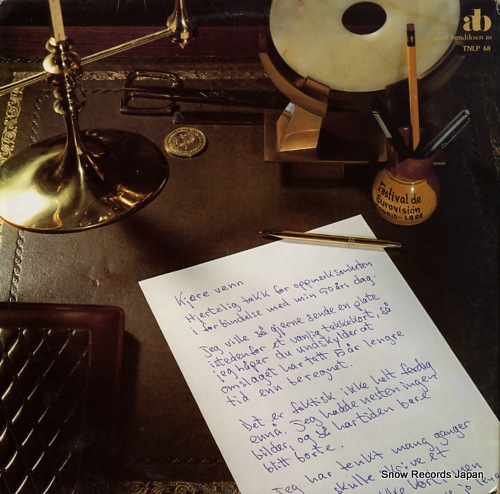 ab
arne bendiksen as
TNLP 68
Festival de
Eurovisión
Kjære venn
Hjertelig takk for oppmerksomheten
i forbindelse med min 50 års dag.
Jeg ville så gjerne sende en plate
istedenfor et vanlig takkekort, så
jeg håper du undskylder at
omslaget har tatt 5 år lengre
tid enn beregnet.
Det er faktisk ikke helt ferdig
ennå. Jeg hadde nesten ingen
bilder, og så har tiden bare
blitt borte.
Jeg har tenkt mang ganger
skulle skrive et
Snow Records Japan